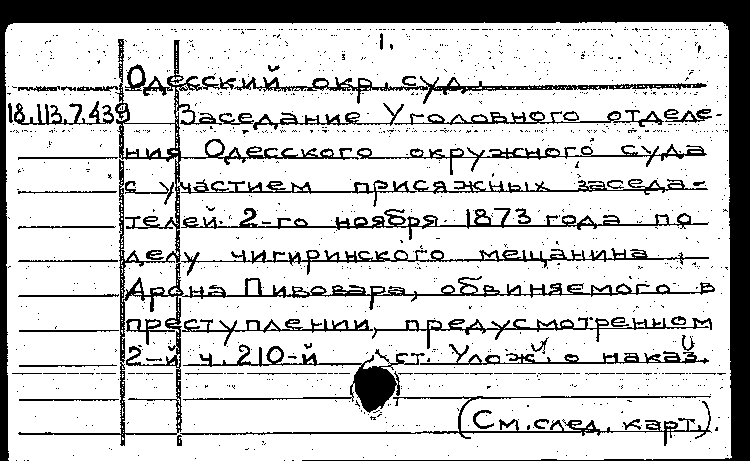 1.
Одесский окр. суд.
18.113.7.439 Заседание Уголовного отделе-
ния Одесского окружного суда
с участием присяжных заседа-
телей 2-го ноября 1873 года по
делу чигиринского мещанина
Арона Пивовара, обвиняемого в
преступлении, предусмотренном
2-й ч. 210-й ст. Улож. о наказ.
(См. след. карт.).